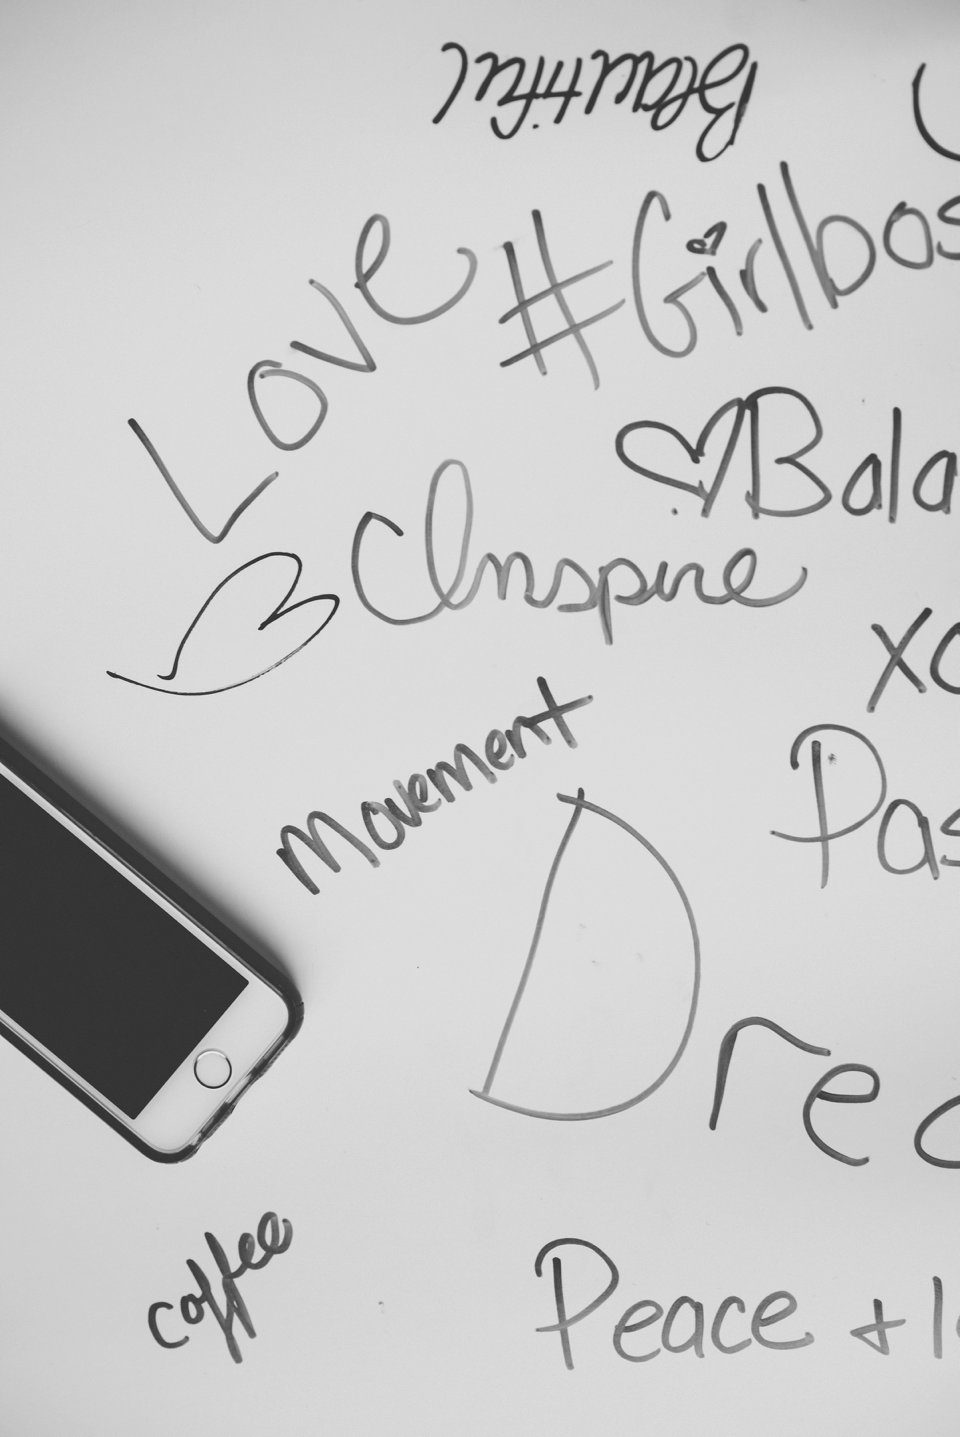 Beautiful
Love
#Girlbos
Bala
Inspire
xo
Movement
Pas
Drea
coffee
Peace + l